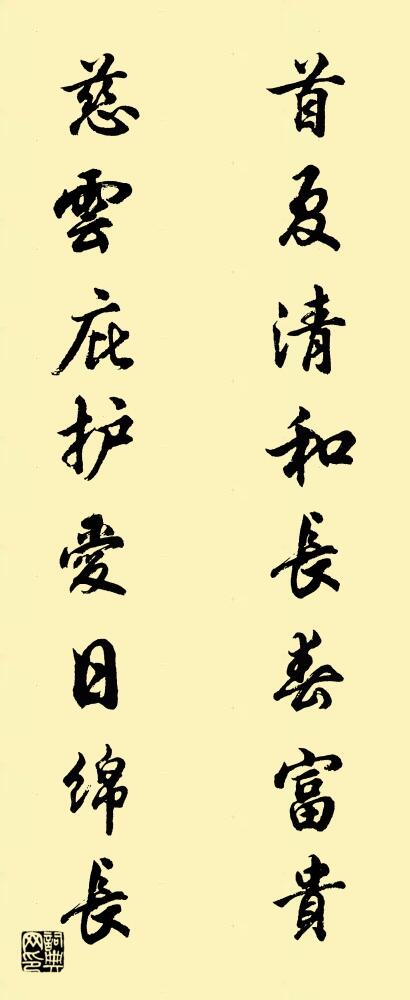 首夏清和長春富貴
慈雲庇护愛日綿長
詞典网印